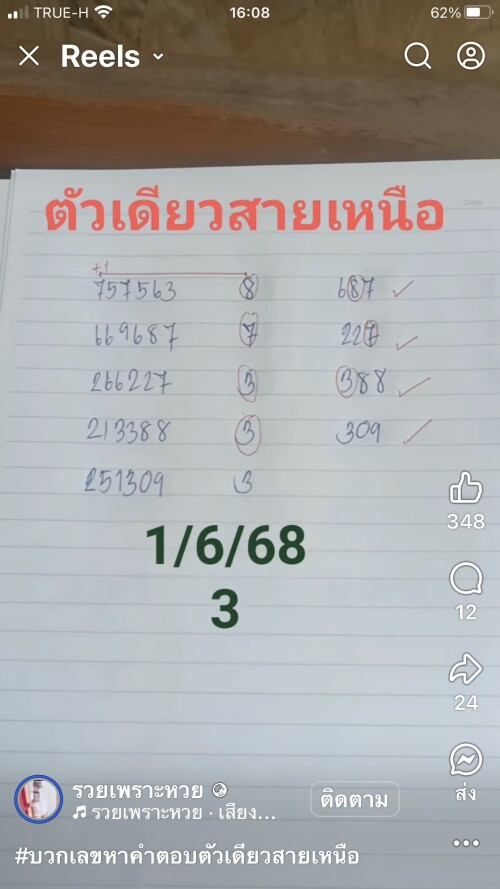 TRUE-H 16:08 62%
Reels
Date
ตัวเดียวสายเหนือ
+1
757563 8 687
669687 7 227
266227 3 388
213388 3 309
251309 3
1/6/68
3
348
12
24
ส่ง
รวยเพราะหวย
ติดตาม
รวยเพราะหวย · เสียง...
#บวกเลขหาคำตอบตัวเดียวสายเหนือ